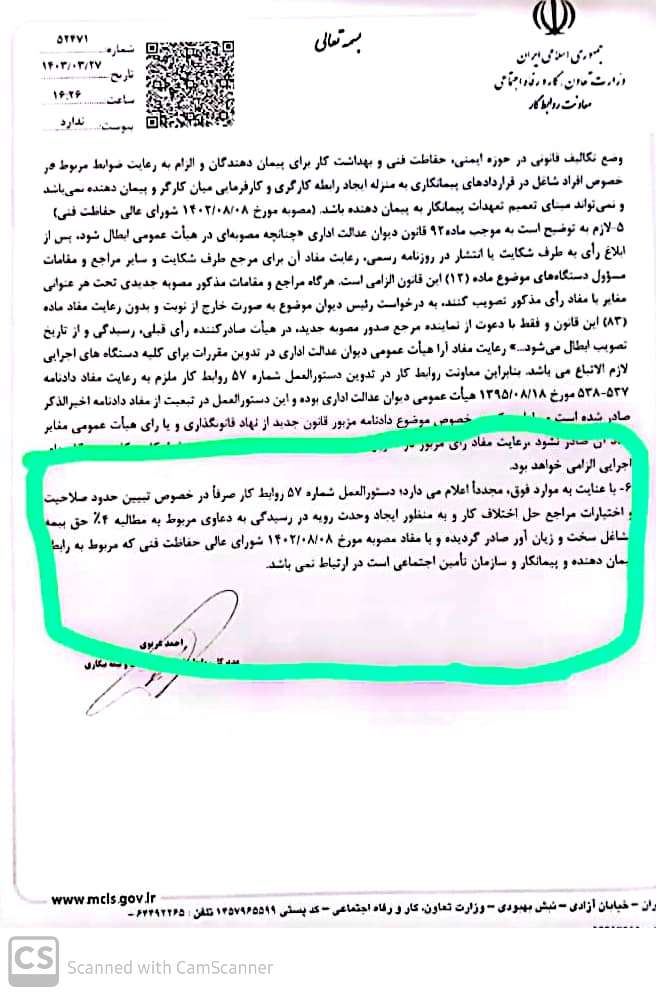 بسمه تعالی
جمهوری اسلامی ایران
وزارت تعاون، کار و رفاه اجتماعی
معاونت روابط کار
شماره ۵۲۴۷۱
تاریخ ۱۴۰۳/۰۳/۲۷
ساعت ۱۶:۲۶
پیوست ندارد
وضع تکالیف قانونی در حوزه ایمنی، حفاظت فنی و بهداشت کار برای پیمان دهندگان و الزام به رعایت ضوابط مربوط در
خصوص افراد شاغل در قراردادهای پیمانکاری به منزله ایجاد رابطه کارگری و کارفرمایی میان کارگر و پیمان دهنده نمی‌باشد
و نمی‌تواند مبنای تعمیم تعهدات پیمانکار به پیمان دهنده باشد. (مصوبه مورخ ۱۴۰۲/۰۸/۰۸ شورای عالی حفاظت فنی)
۵-لازم به توضیح است به موجب ماده۹۲ قانون دیوان عدالت اداری «چنانچه مصوبه‌ای در هیأت عمومی ابطال شود، پس از
ابلاغ رأی به طرف شکایت یا انتشار در روزنامه رسمی، رعایت مفاد آن برای مرجع طرف شکایت و سایر مراجع و مقامات
مسؤول دستگاه‌های موضوع ماده (۱۲) این قانون الزامی است. هرگاه مراجع و مقامات مذکور مصوبه جدیدی تحت هر عنوانی
مغایر با مفاد رأی مذکور تصویب کنند، به درخواست رئیس دیوان موضوع به صورت خارج از نوبت و بدون رعایت مفاد ماده
(۸۳) این قانون و فقط با دعوت از نماینده مرجع صدور مصوبه جدید، در هیأت صادرکننده رأی قبلی، رسیدگی و از تاریخ
تصویب ابطال می‌شود...» رعایت مفاد آرا هیأت عمومی دیوان عدالت اداری در تدوین مقررات برای کلیه دستگاه های اجرایی
لازم الاتباع می باشد. بنابراین معاونت روابط کار در تدوین دستورالعمل شماره ۵۷ روابط کار ملزم به رعایت مفاد دادنامه
۵۳۷-۵۳۸ مورخ ۱۳۹۵/۰۸/۱۸ هیأت عمومی دیوان عدالت اداری بوده و این دستورالعمل در تبعیت از مفاد دادنامه اخیرالذکر
صادر شده است خصوص موضوع دادنامه مزبور قانون جدید از نهاد قانونگذاری و یا رای هیأت عمومی مغایر
آن صادر نشود ،رعایت مفاد رای مزبور در
اجرایی الزامی خواهد بود.
۶- با عنایت به موارد فوق، مجدداً اعلام می دارد؛ دستورالعمل شماره ۵۷ روابط کار صرفاً در خصوص تبیین حدود صلاحیت
و اختیارات مراجع حل اختلاف کار و به منظور ایجاد وحدت رویه در رسیدگی به دعاوی مربوط به مطالبه ۴٪ حق بیمه
شاغل سخت و زیان آور صادر گردیده و با مفاد مصوبه مورخ ۱۴۰۲/۰۸/۰۸ شورای عالی حفاظت فنی که مربوط به رابط
پیمان دهنده و پیمانکار و سازمان تأمین اجتماعی است در ارتباط نمی باشد.
احمد غریوی
www.mcls.gov.ir
ران - خیابان آزادی - نبش بهبودی - وزارت تعاون، کار و رفاه اجتماعی - کد پستی ۱۴۵۷۹۶۵۵۹۹ تلفن : ۶۴۴۹۲۲۶۵-
CS Scanned with CamScanner